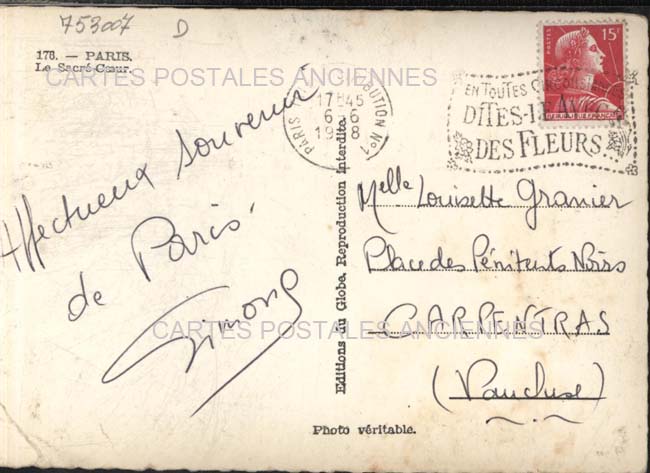 753007 D
178. — PARIS.
Le Sacré-Cœur.
CARTES POSTALES ANCIENNES
Affectueux souvenir
de Paris.
Simone
Editions du Globe. Reproduction Interdite.
Photo véritable.
PARIS DISTRIBUTION No 1
17H45
6-6
POSTES
15F
REPUBLIQUE FRANÇAISE
EN TOUTES
DITES-LE AVEC
DES FLEURS...
Melle Louisette Granier
Place des Pénitents Noirs
CARPENTRAS
(Vaucluse)
CARTES POSTALES ANCIENNES